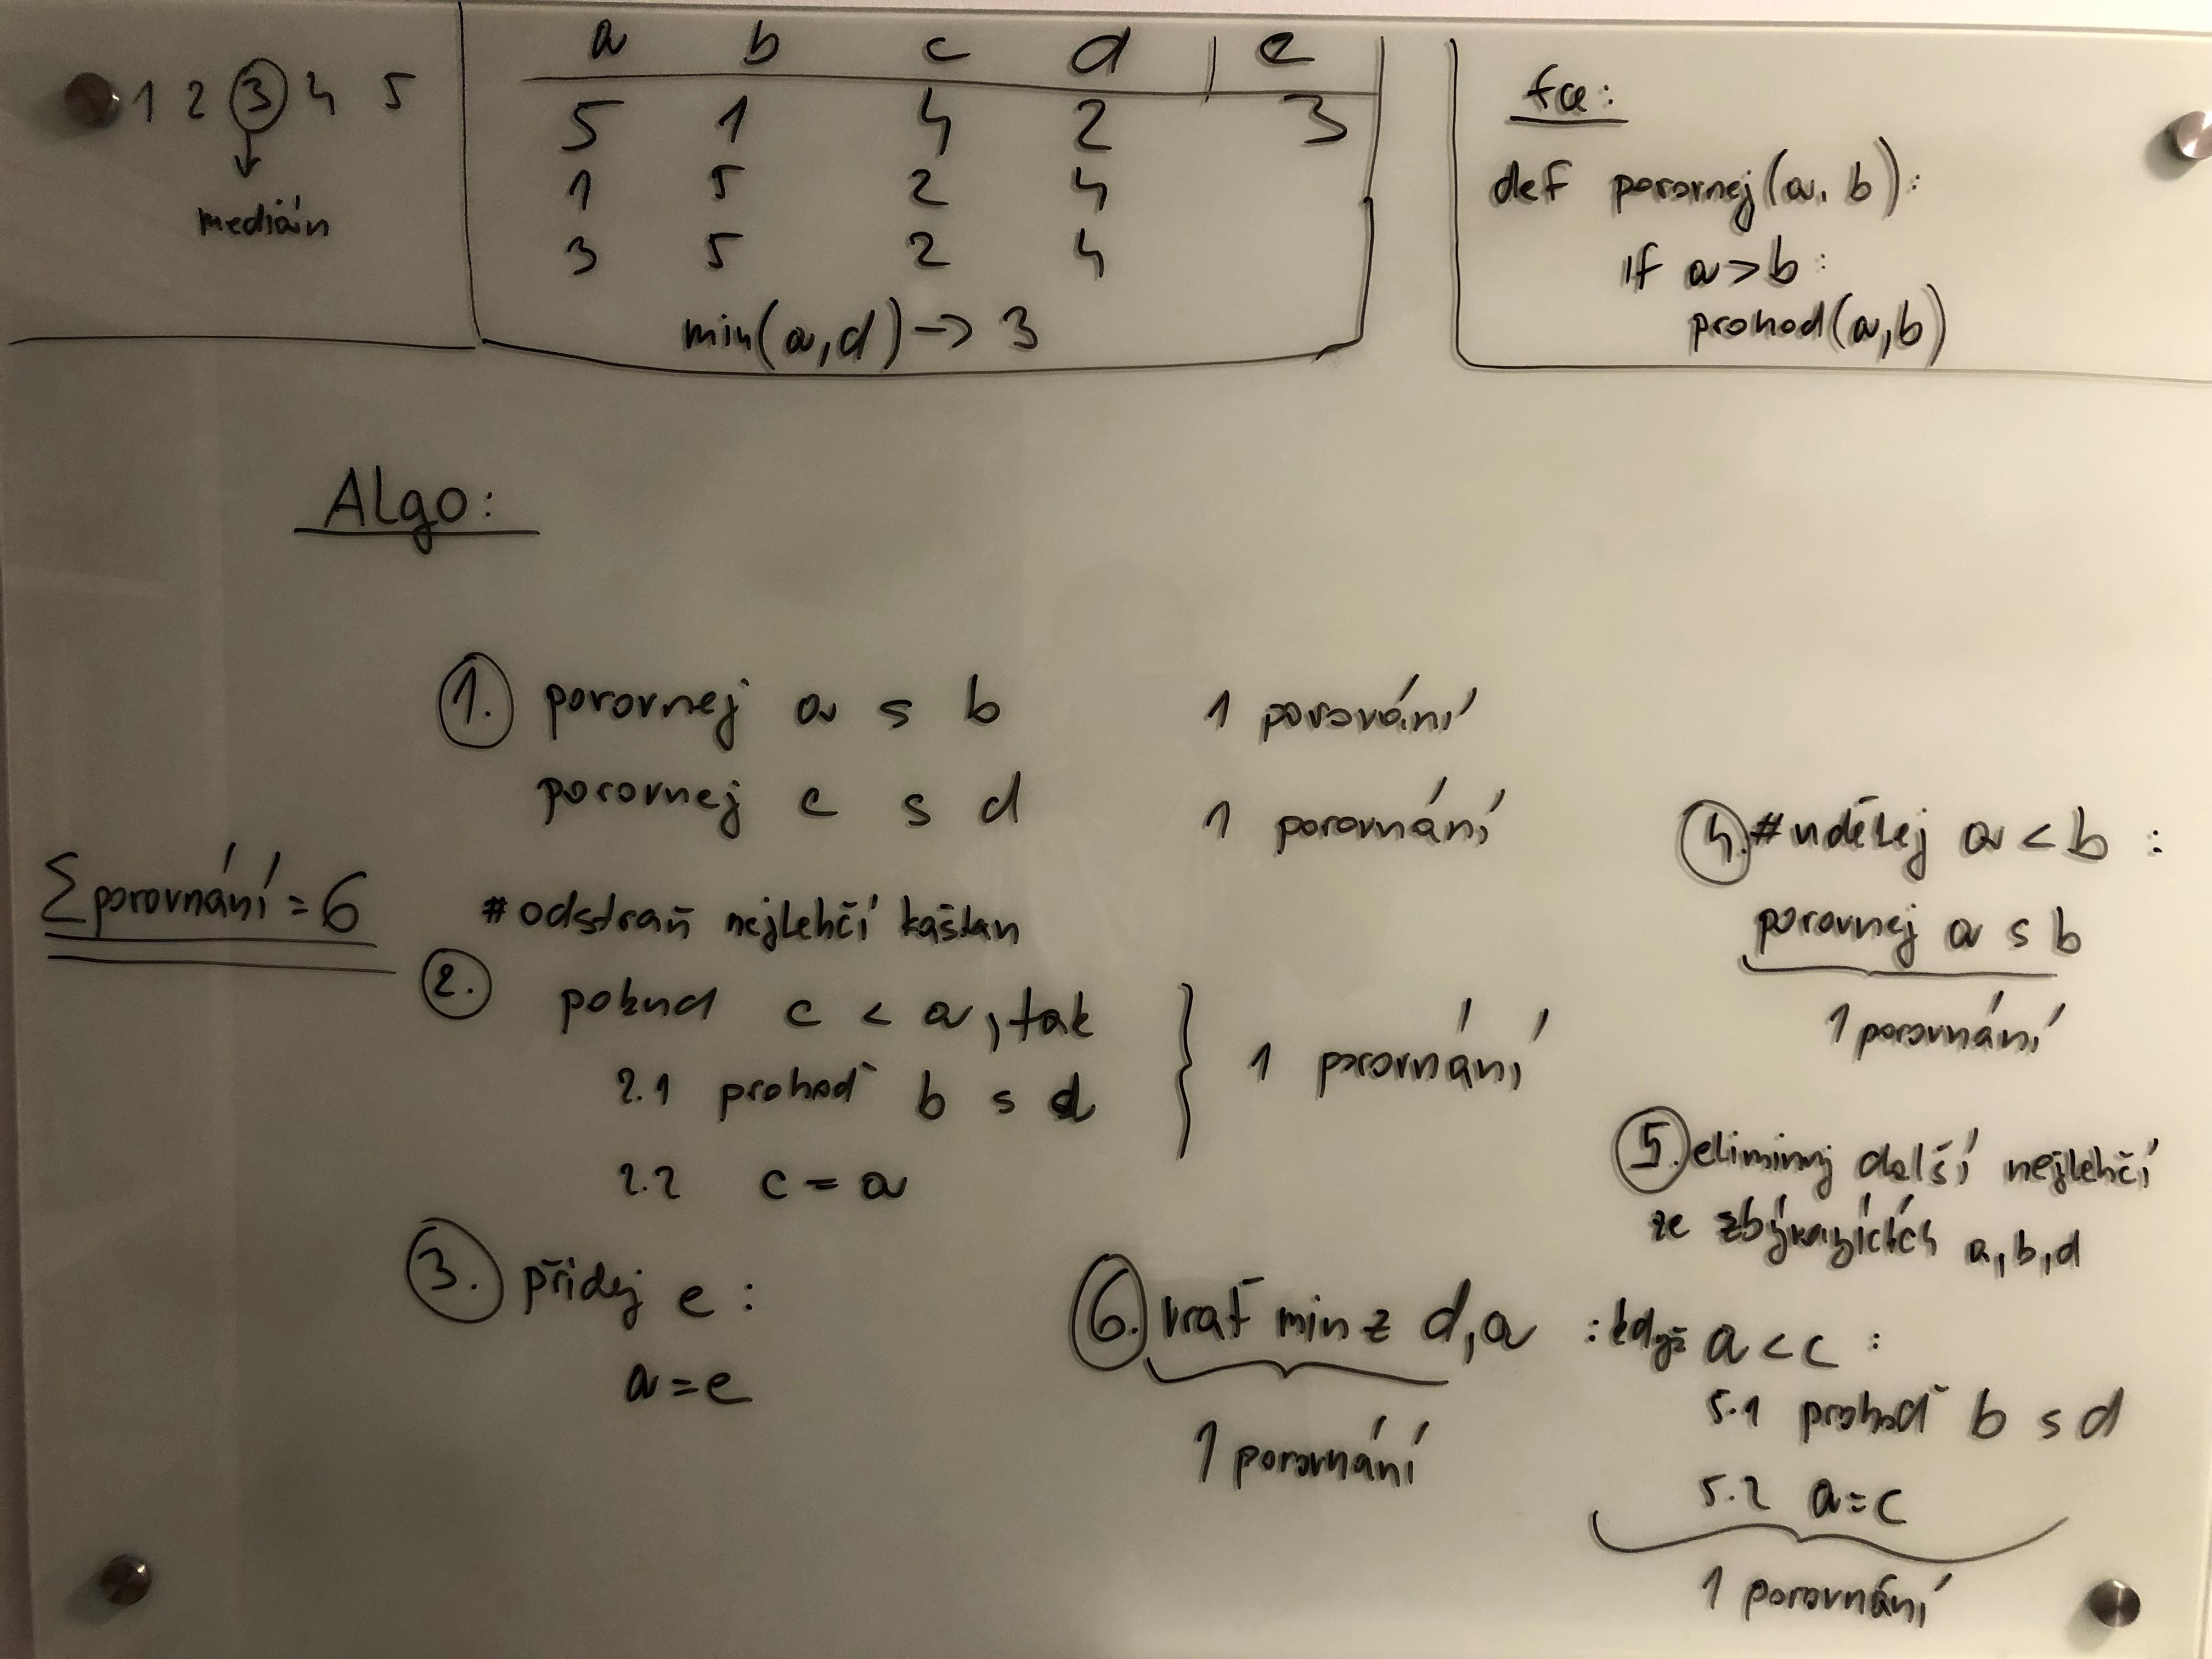 1 2 3 4 5
medián
a b c d | e
5 1 4 2 3
1 5 2 4
3 5 2 4
min(a,d) -> 3
fce:
def porovnej(a, b):
if a>b:
prohod(a,b)
Algo:
1. porovnej a s b 1 porování
porovnej c s d 1 porovnání
Σ porovnání = 6
#odstraň nejlehčí kaštan
2. pokud c < a, tak
2.1 prohoď b s d
2.2 c = a
1 porovnání
3. přidej e:
a = e
4. #udělej a < b:
porovnej a s b
1 porovnání
5. eliminuj další nejlehčí
ze zbývajících a, b, d
: když a < c :
5.1 prohoď b s d
5.2 a = c
1 porovnání
6. vrať min z d, a
1 porovnání